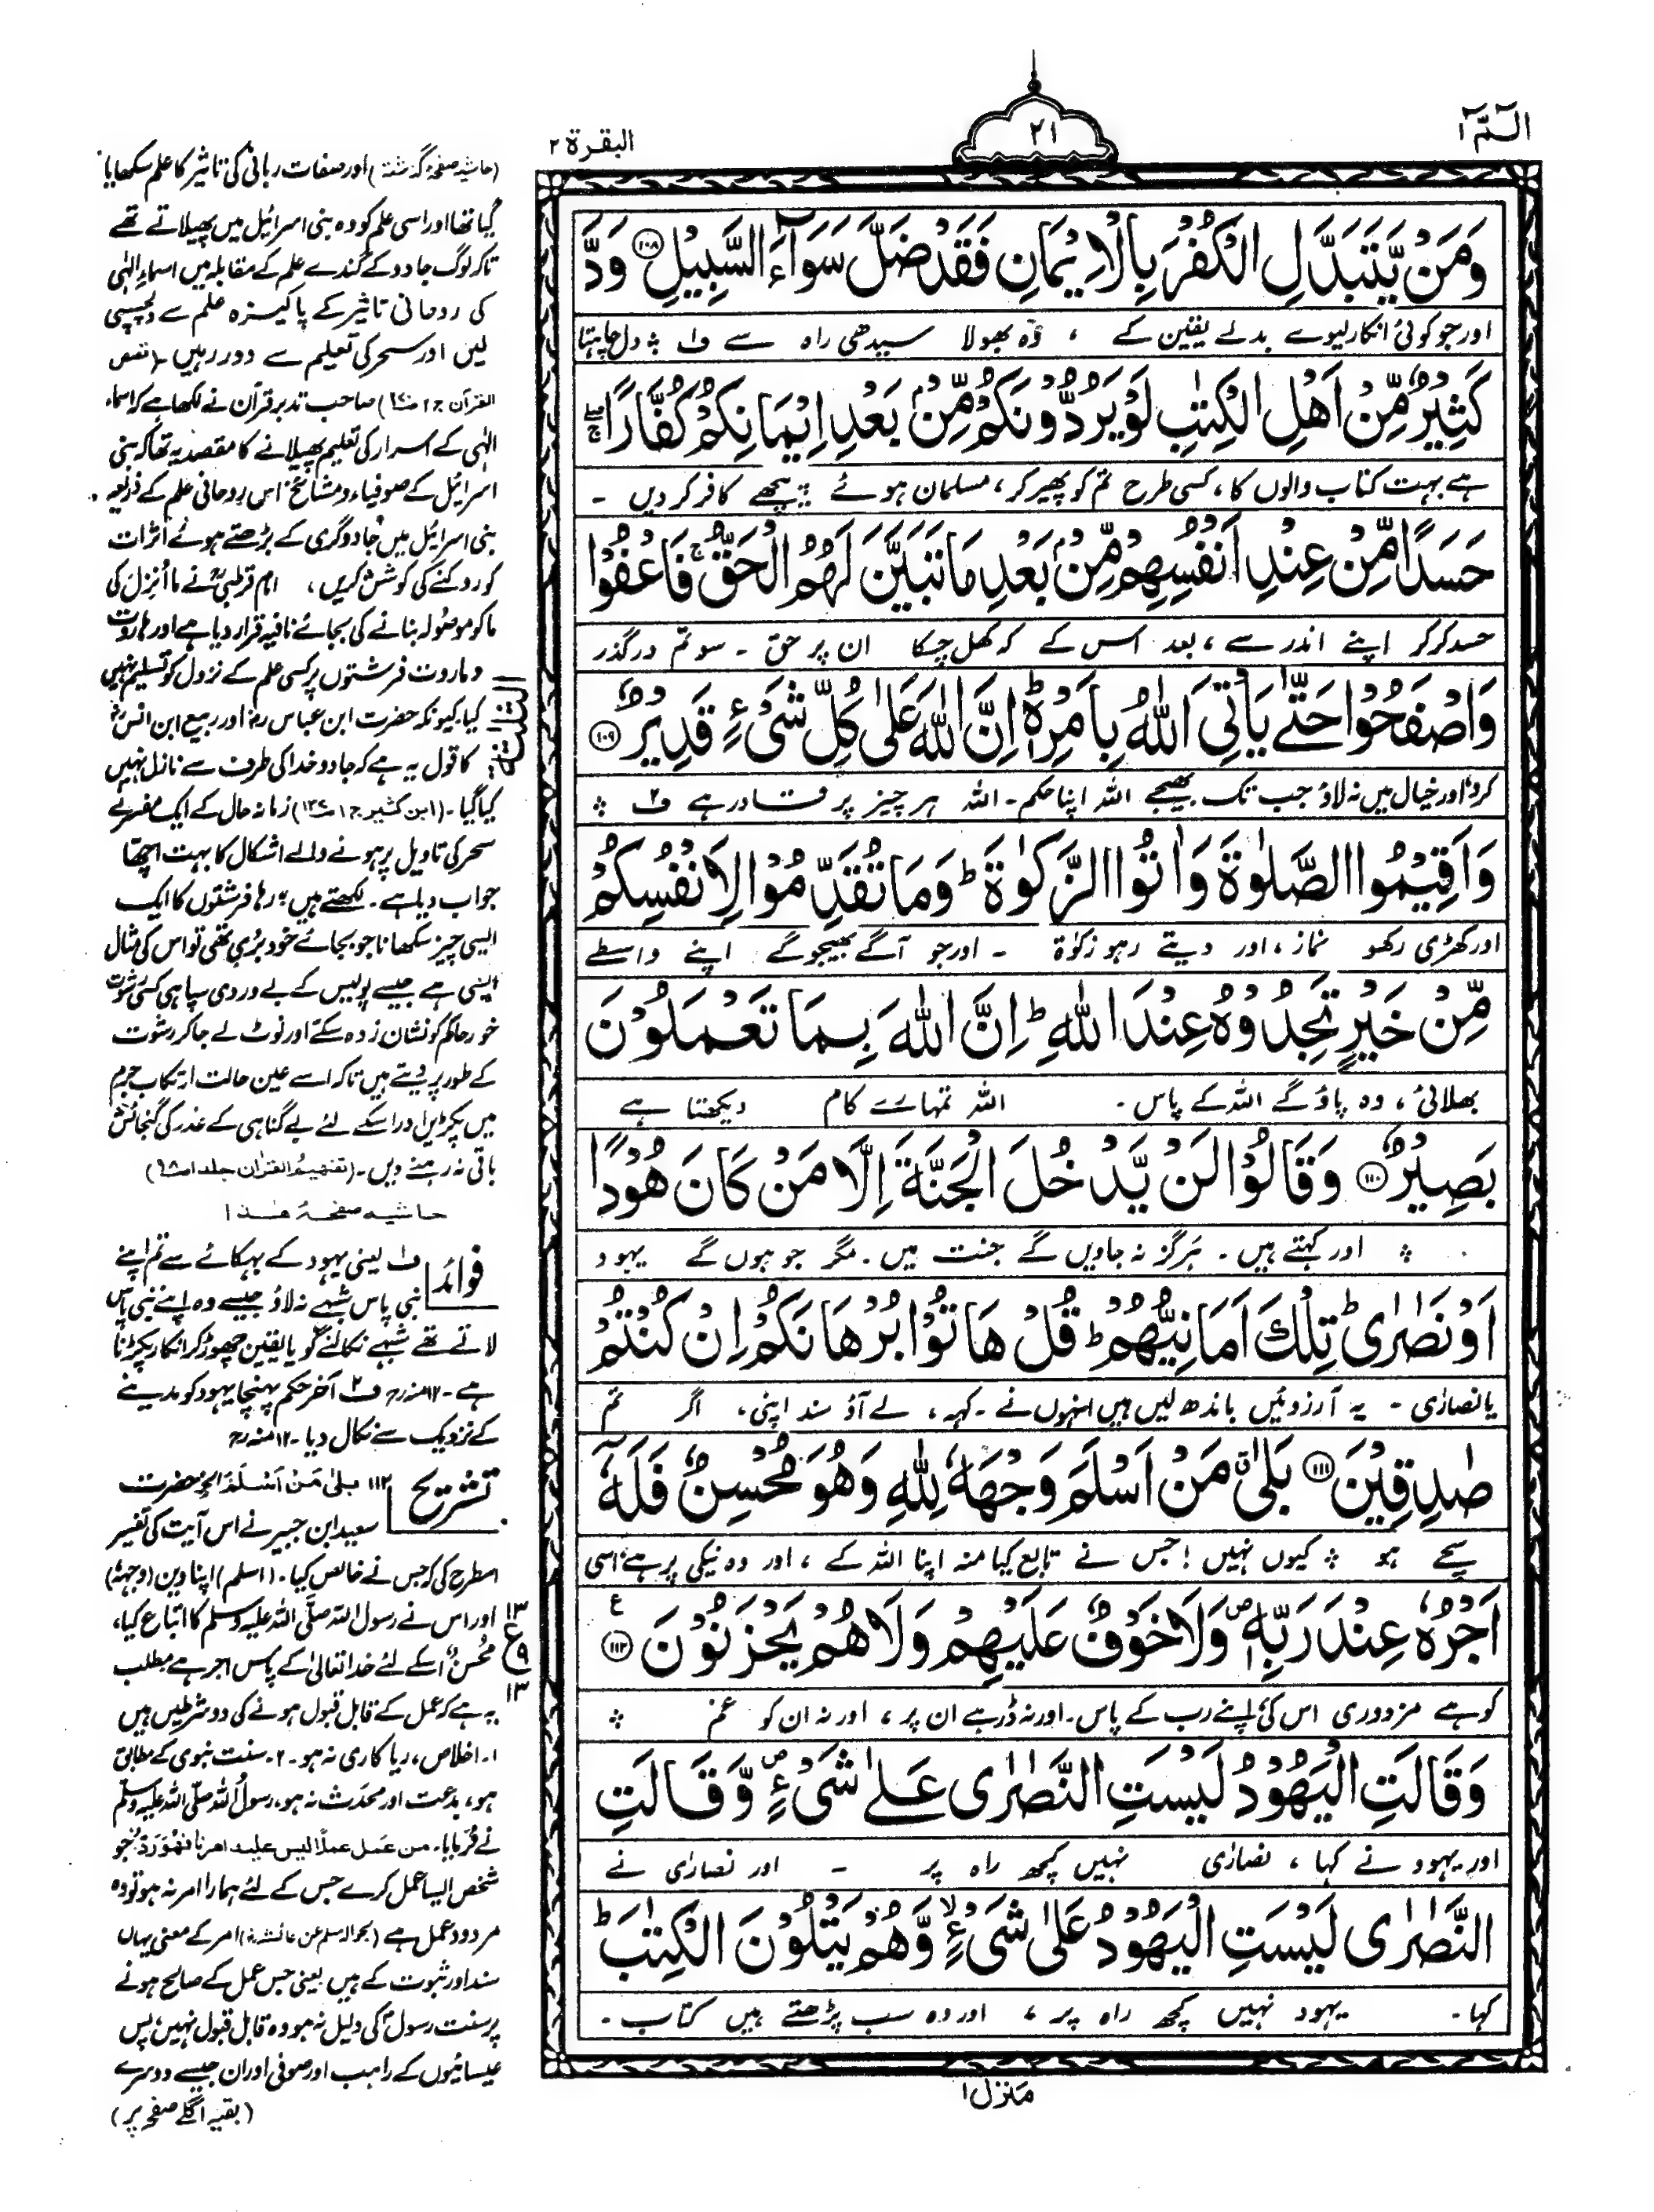 الٓمّٓ ۱
۲۱
البقرة ۲
وَمَنْ يَّتَبَدَّلِ الْكُفْرَ بِالْاِيْمَانِ فَقَدْ ضَلَّ سَوَآءَ السَّبِيْلِ ۝۱۰۸ وَدَّ
اور جو کوئی انکار لیوے بدلے یقین کے ، وہ بھولا سیدھی راہ سے ف۱ ؞ دل چاہتا
كَثِيْرٌ مِّنْ اَهْلِ الْكِتٰبِ لَوْ يَرُدُّوْنَكُمْ مِّنْۢ بَعْدِ اِيْمَانِكُمْ كُفَّارًا ۚۖ
ہے بہت کتاب والوں کا ، کسی طرح تم کو پھیر کر ، مسلمان ہوئے پیچھے کافر کر دیں ۔
حَسَدًا مِّنْ عِنْدِ اَنْفُسِهِمْ مِّنْۢ بَعْدِ مَا تَبَيَّنَ لَهُمُ الْحَقُّ ۚ فَاعْفُوْا
حسد کرکر اپنے اندر سے ، بعد اس کے کہ کھل چکا ان پر حق ۔ سو تم درگذر
وَاصْفَحُوْا حَتّٰى يَاْتِيَ اللّٰهُ بِاَمْرِهٖ ؕ اِنَّ اللّٰهَ عَلٰى كُلِّ شَيْءٍ قَدِيْرٌ ۝۱۰۹
کرو اور خیال میں نہ لاؤ جب تک بھیجے اللہ اپنا حکم ۔ اللہ ہر چیز پر قادر ہے ف۲ ؞
وَاَقِيْمُوا الصَّلٰوةَ وَاٰتُوا الزَّكٰوةَ ؕ وَمَا تُقَدِّمُوْا لِاَنْفُسِكُمْ
اور کھڑی رکھو نماز ، اور دیتے رہو زکوٰۃ ۔ اور جو آگے بھیجو گے اپنے واسطے
مِّنْ خَيْرٍ تَجِدُوْهُ عِنْدَ اللّٰهِ ؕ اِنَّ اللّٰهَ بِمَا تَعْمَلُوْنَ
بھلائی ، وہ پاؤ گے اللہ کے پاس ۔ اللہ تمہارے کام دیکھتا ہے
بَصِيْرٌ ۝۱۱۰ وَقَالُوْا لَنْ يَّدْخُلَ الْجَنَّةَ اِلَّا مَنْ كَانَ هُوْدًا
؞ اور کہتے ہیں ۔ ہرگز نہ جاویں گے جنت میں ۔ مگر جو ہوں گے یہود
اَوْ نَصٰرٰى ؕ تِلْكَ اَمَانِيُّهُمْ ؕ قُلْ هَاتُوْا بُرْهَانَكُمْ اِنْ كُنْتُمْ
یا نصارٰی ۔ یہ آرزوئیں باندھ لیں ہیں انہوں نے ۔ کہہ ، لے آؤ سند اپنی ، اگر تم
صٰدِقِيْنَ ۝۱۱۱ بَلٰى ۗ مَنْ اَسْلَمَ وَجْهَهٗ لِلّٰهِ وَهُوَ مُحْسِنٌ فَلَهٗۤ
سچے ہو ؞ کیوں نہیں ! جس نے تابع کیا منہ اپنا اللہ کے ، اور وہ نیکی پر ہے ، اسی
اَجْرُهٗ عِنْدَ رَبِّهٖ ۪ وَلَا خَوْفٌ عَلَيْهِمْ وَلَا هُمْ يَحْزَنُوْنَ ۝۱۱۲ ع
کو ہے مزدوری اس کی اپنے رب کے پاس ۔ اور نہ ڈر ہے ان پر ، اور نہ ان کو غم ؞
وَقَالَتِ الْيَهُوْدُ لَيْسَتِ النَّصٰرٰى عَلٰى شَيْءٍ ۪ وَّقَالَتِ
اور یہود نے کہا ، نصارٰی نہیں کچھ راہ پر ۔ اور نصارٰی نے
النَّصٰرٰى لَيْسَتِ الْيَهُوْدُ عَلٰى شَيْءٍ ۙ وَّهُمْ يَتْلُوْنَ الْكِتٰبَ ؕ
کہا ۔ یہود نہیں کچھ راہ پر ، اور وہ سب پڑھتے ہیں کتاب ۔
منزل ۱
(حاشیہ صفحۂ گذشتہ) اور صفات ربانی کی تاثیر کا علم سکھایا
گیا تھا اور اسی علم کو وہ بنی اسرائیل میں پھیلاتے تھے
تاکہ لوگ جادو کے گندے علم کے مقابلہ میں اسماءِ الٰہی
کی روحانی تاثیر کے پاکیزہ علم سے دلچسپی
لیں اور سحر کی تعلیم سے دور رہیں ۔ (قصص
القرآن ج۲) صاحب تدبر قرآن نے لکھا ہے کہ اسماء
الٰہی کے اسرار کی تعلیم پھیلانے کا مقصد یہ تھا کہ بنی
اسرائیل کے صوفیاء و مشائخ اس روحانی علم کے ذریعہ
بنی اسرائیل میں جادوگری کے بڑھتے ہوئے اثرات
کو روکنے کی کوشش کریں ، امام قرطبیؒ نے ما اُنزِلَ کی
ما کو موصولہ بنانے کی بجائے نافیہ قرار دیا ہے اور ہاروت
و ماروت فرشتوں پر کسی علم کے نزول کو تسلیم نہیں
کیا ۔ کیونکہ حضرت ابن عباسؓ اور ربیع ابن انسؒ
کا قول یہ ہے کہ جادو خدا کی طرف سے نازل نہیں
کیا گیا ۔ (ابن کثیر ج۱) زمانہ حال کے ایک مفسر نے
سحر کی تاویل پر ہونے والے اشکال کا بہت اچھا
جواب دیا ہے ۔ لکھتے ہیں ، رہا فرشتوں کا ایک
ایسی چیز سکھانا جو بجائے خود بُری تھی تو اس کی مثال
ایسی ہے جیسے پولیس کے بے وردی سپاہی کسی رشوت
خور حاکم کو نشان زدہ سکے اور نوٹ لے جا کر رشوت
کے طور پر دیتے ہیں تاکہ اسے عین حالت ارتکاب جرم
میں پکڑیں اور اسکے لئے بے گناہی کے عذر کی گنجائش
باقی نہ رہنے دیں ۔ (تفہیم القرآن جلد۱ ص۹۸)
حاشیہ صفحۂ ھٰذا
فوائد ف۱ یعنی یہود کے بہکانے سے تم اپنے
نبی پاس شبہے نہ لاؤ جیسے وہ اپنے نبی پاس
لاتے تھے شبہے نکالنے گویا یقین چھوڑ کر انکار پکڑنا
ہے ۔ ۱۲ منہ رح ف۲ آخر حکم پہنچا یہود کو مدینے
کے نزدیک سے نکال دیا ۔ ۱۲ منہ رح
تشریح ۱۱۲ بلیٰ مَنْ اَسْلَمَ الخ حضرت
سعید ابن جبیر نے اس آیت کی تفسیر
اسطرح کی کہ جس نے خالص کیا ۔ (اسلم) اپنا دین (وجہہٗ)
اور اس نے رسول اللہ صلّی اللہ علیہ وسلم کا اتباع کیا ،
مُحسنٌ اسکے لئے خدا تعالیٰ کے پاس اجر ہے مطلب
یہ ہے کہ عمل کے قابل قبول ہونے کی دو شرطیں ہیں
۱ ۔ اخلاص ، ریا کاری نہ ہو ۔ ۲ ۔ سنت نبوی کے مطابق
ہو ، بدعت اور محدَث نہ ہو ، رسول اللہ صلّی اللہ علیہ وسلم
نے فرمایا ۔ من عمل عملًا لیس علیہ امرنا فھو رد ۔ جو
شخص ایسا عمل کرے جس کے لئے ہمارا امر نہ ہو تو وہ
مردود عمل ہے (بحوالہ مسلم عن عائشہ) امر کے معنی یہاں
سند اور ثبوت کے ہیں یعنی جس عمل کے صالح ہونے
پر سنت رسولؐ کی دلیل نہ ہو وہ قابل قبول نہیں ، پس
عیسائیوں کے راہب اور صوفی اور ان جیسے دوسرے
(بقیہ اگلے صفحہ پر)
الثلثة
۱۳
ع ۹
۱۳